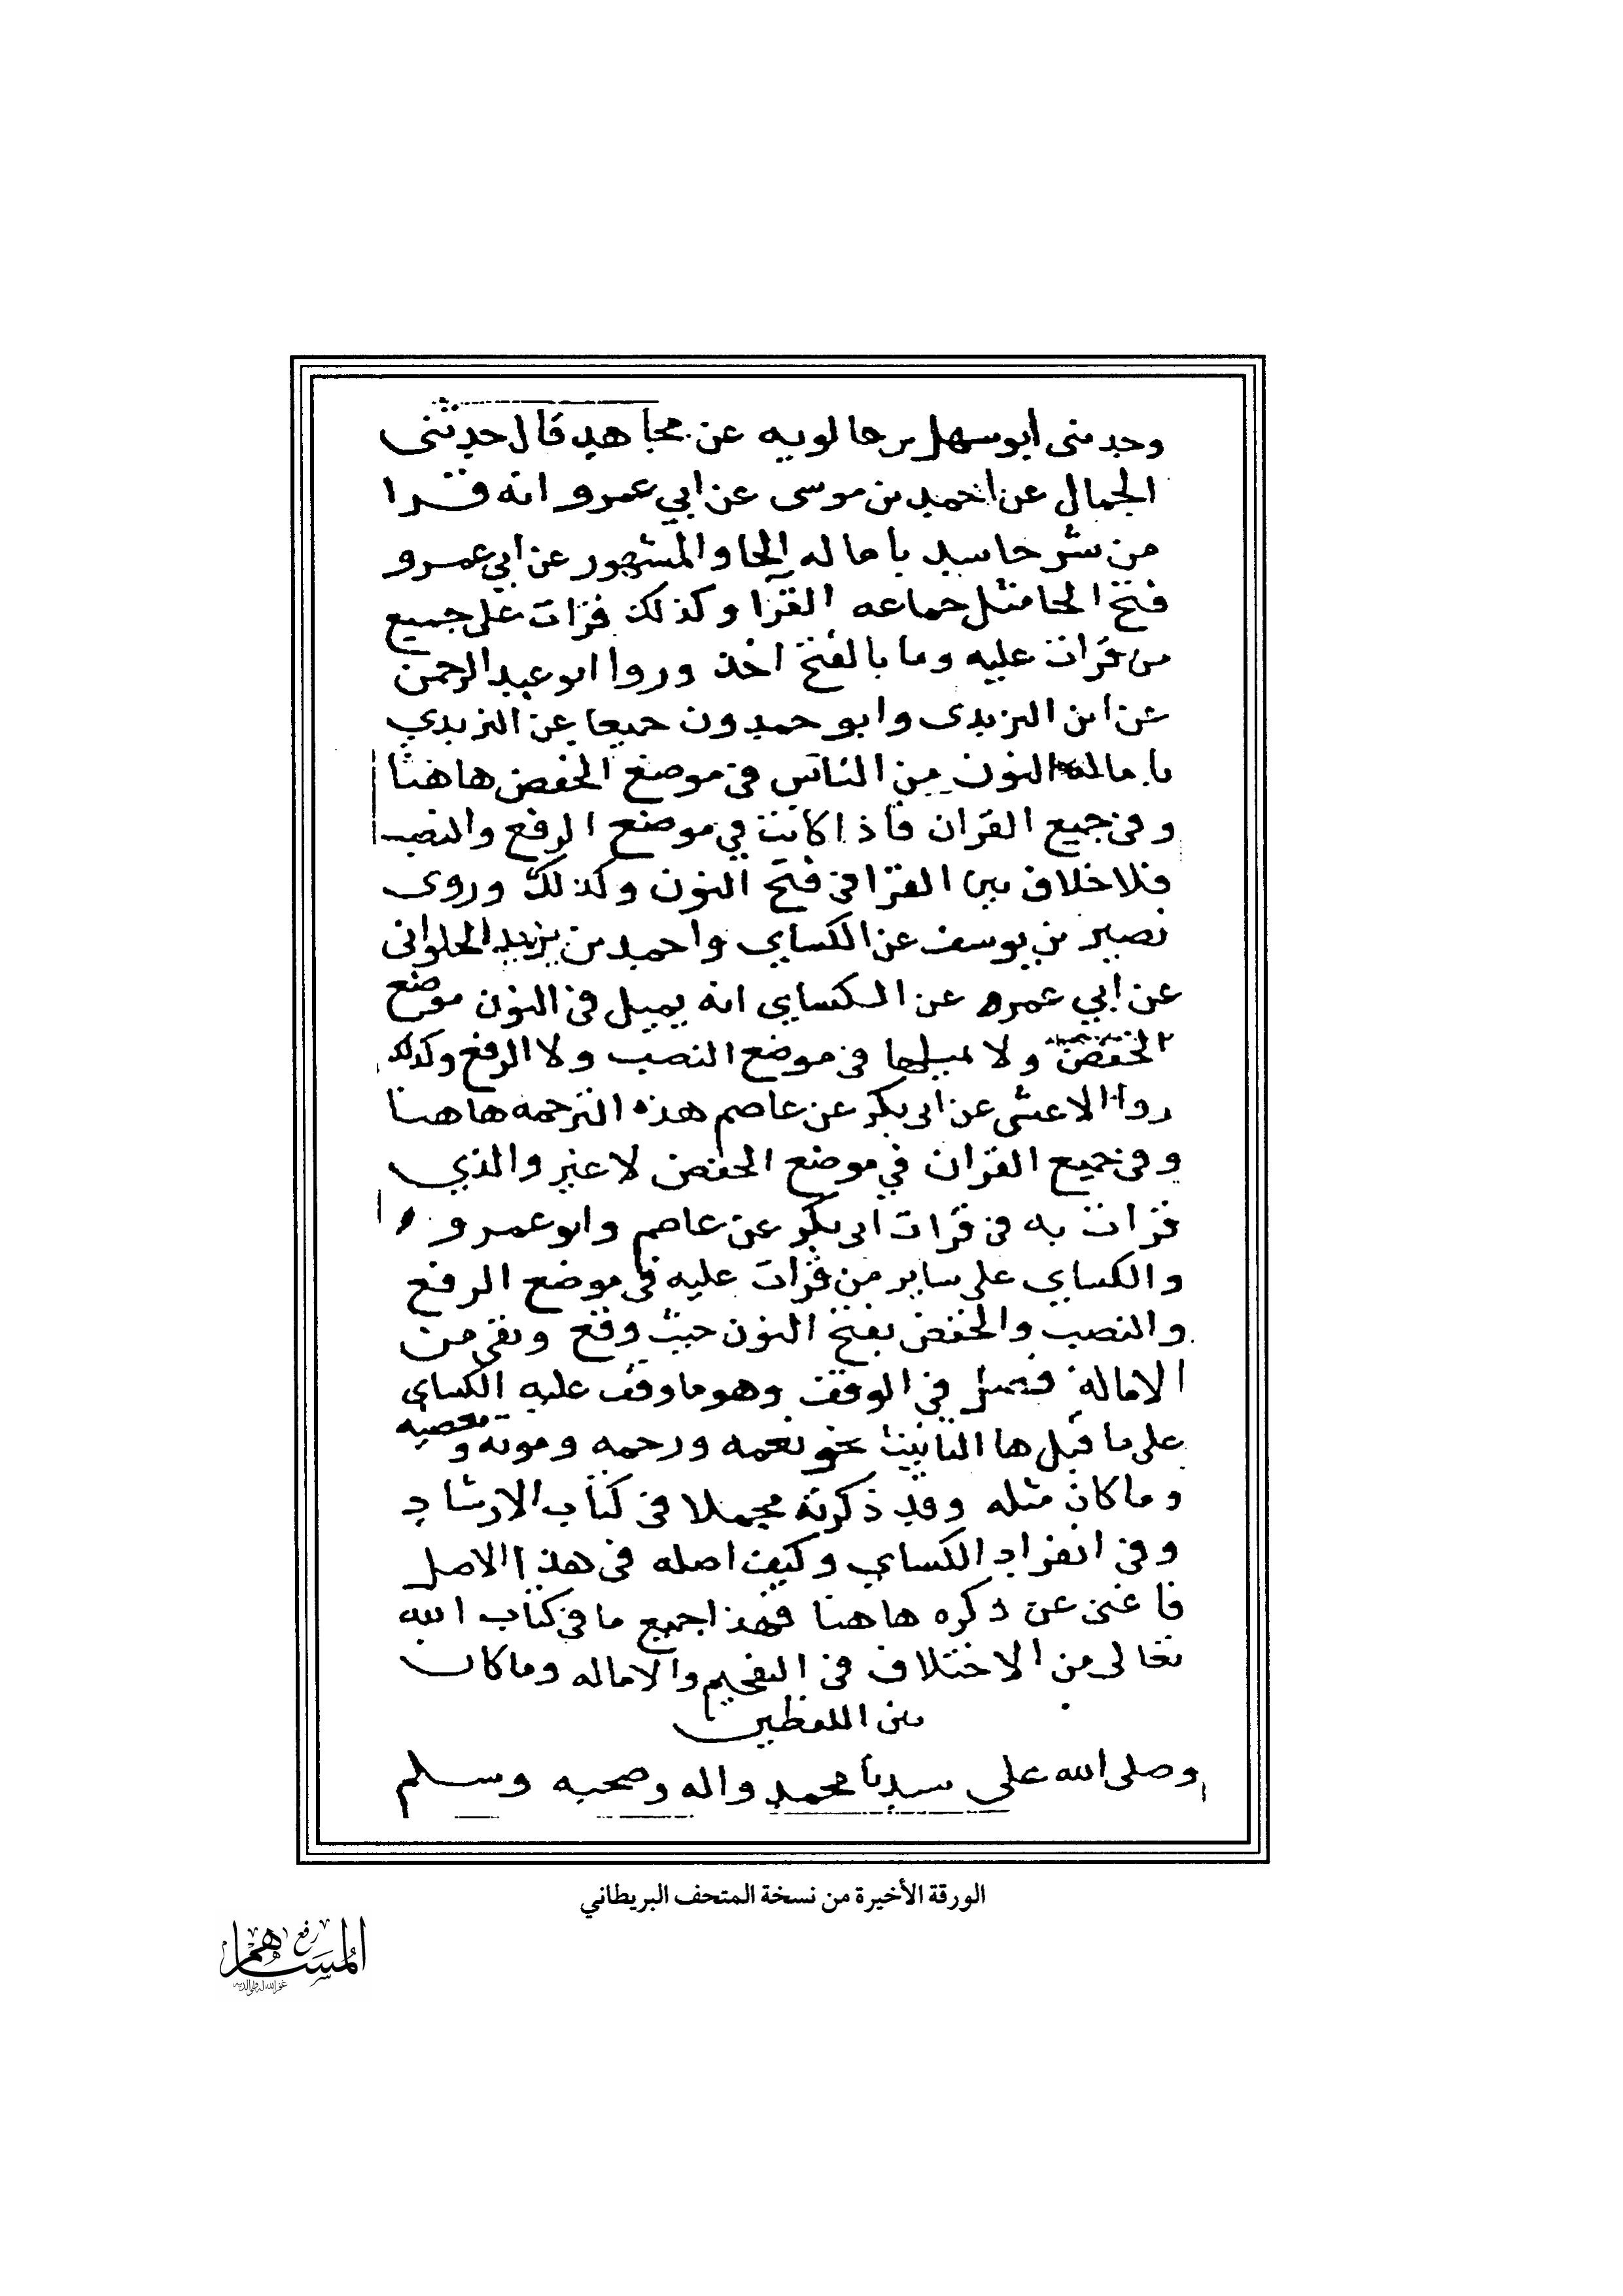 وحدثنى ابو سهل عن مجاهد قال حدثنى
الجمال عن احمد بن موسى عن ابي عمرو انه قرا
من شر حاسد باماله الحا والمشهور عن ابي عمرو
فتح الحا مثل جماعه القرا وكذلك قرات على جميع
من قرات عليه وما بالفتح اخذ وروا ابو عبد الرحمن
عن ابن اليزيدى وابو حمدون جميعا عن اليزيدي
باماله النون من الناس فى موضع الخفض هاهنا
وفى جميع القران فاذا كانت في موضع الرفع والنصب
فلا خلاف بين القرا فى فتح النون وكذلك وروى
نصير بن يوسف عن الكساي واحمد بن يزيد الحلوانى
عن ابي عمرو عن الكساي انه يميل فى النون موضع
الخفض ولا يميلها فى موضع النصب ولا الرفع وكذلك
روا الاعشى عن ابى بكر عن عاصم هذه الترجمه هاهنا
وفى جميع القران في موضع الخفض لا غير والذي
قرات به فى قرات ابى بكر عن عاصم وابو عمرو
والكساي على ساير من قرات عليه فى موضع الرفع
والنصب والخفض بفتح النون حيث وقع وبقى من
الاماله فصل في الوقف وهو ما وقف عليه الكساي
على ما قبل ها التانيث نحو نعمه ورحمه ومونه ومعصيه
وما كان مثله وقد ذكرته مجملا فى كتاب الارشاد
وفى انفراد الكساي وكيف اصله فى هذا الاصل
فاغنى عن ذكره هاهنا فهذا جميع ما فى كتاب الله
تعالى من الاختلاف فى التفخيم والاماله وما كان
بين اللفظين
وصلى الله على سيدنا محمد واله وصحبه وسلم
الورقة الأخيرة من نسخة المتحف البريطاني
رفع
المساهم
غفر الله له ولوالديه